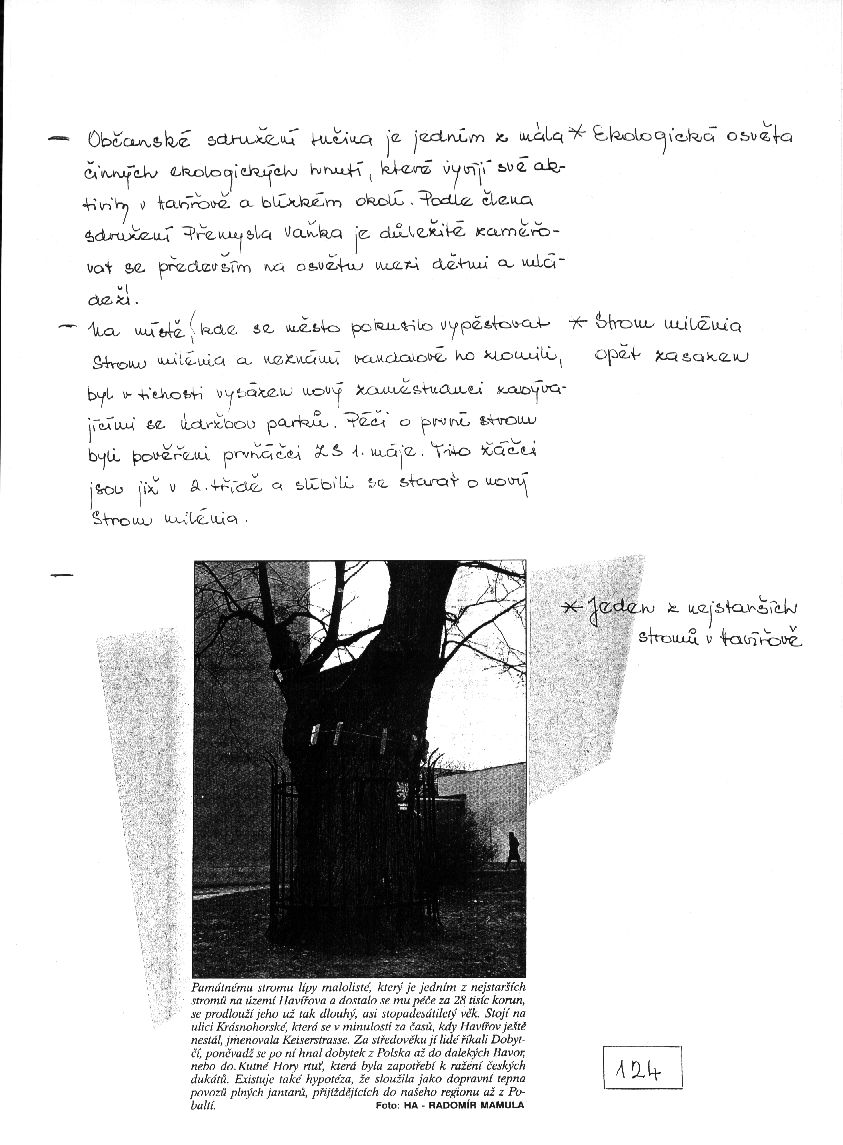 — Občanské sdružení Lučina je jedním z mála * Ekologická osvěta
činných ekologických hnutí, které vyvíjí své ak-
tivity v Havířově a blízkém okolí. Podle člena
sdružení Přemysla Vaňka je důležité zaměřo-
vat se především na osvětu mezi dětmi a mlá-
deží.
— Na místě, kde se město pokusilo vypěstovat * Strom milénia
Strom milénia a neznámí vandalové ho zlomili, opět zasazen
byl v tichosti vysázen nový zaměstnanci zabýva-
jícími se údržbou parků. Péčí o první strom
byli pověřeni prvňáčci ZŠ 1. máje. Tito žáčci
jsou již v 2. třídě a slíbili se starat o nový
Strom milénia.
—
* Jeden z nejstarších
stromů v Havířově
Památnému stromu lípy malolisté, který je jedním z nejstarších
stromů na území Havířova a dostalo se mu péče za 28 tisíc korun,
se prodlouží jeho už tak dlouhý, asi stopadesátiletý věk. Stojí na
ulici Krásnohorské, která se v minulosti za časů, kdy Havířov ještě
nestál, jmenovala Keiserstrasse. Za středověku jí lidé říkali Dobyt-
čí, poněvadž se po ní hnal dobytek z Polska až do dalekých Bavor,
nebo do Kutné Hory rtuť, která byla zapotřebí k ražení českých
dukátů. Existuje také hypotéza, že sloužila jako dopravní tepna
povozů plných jantarů, přijíždějících do našeho regionu až z Po-
baltí. Foto: HA - RADOMÍR MAMULA
124